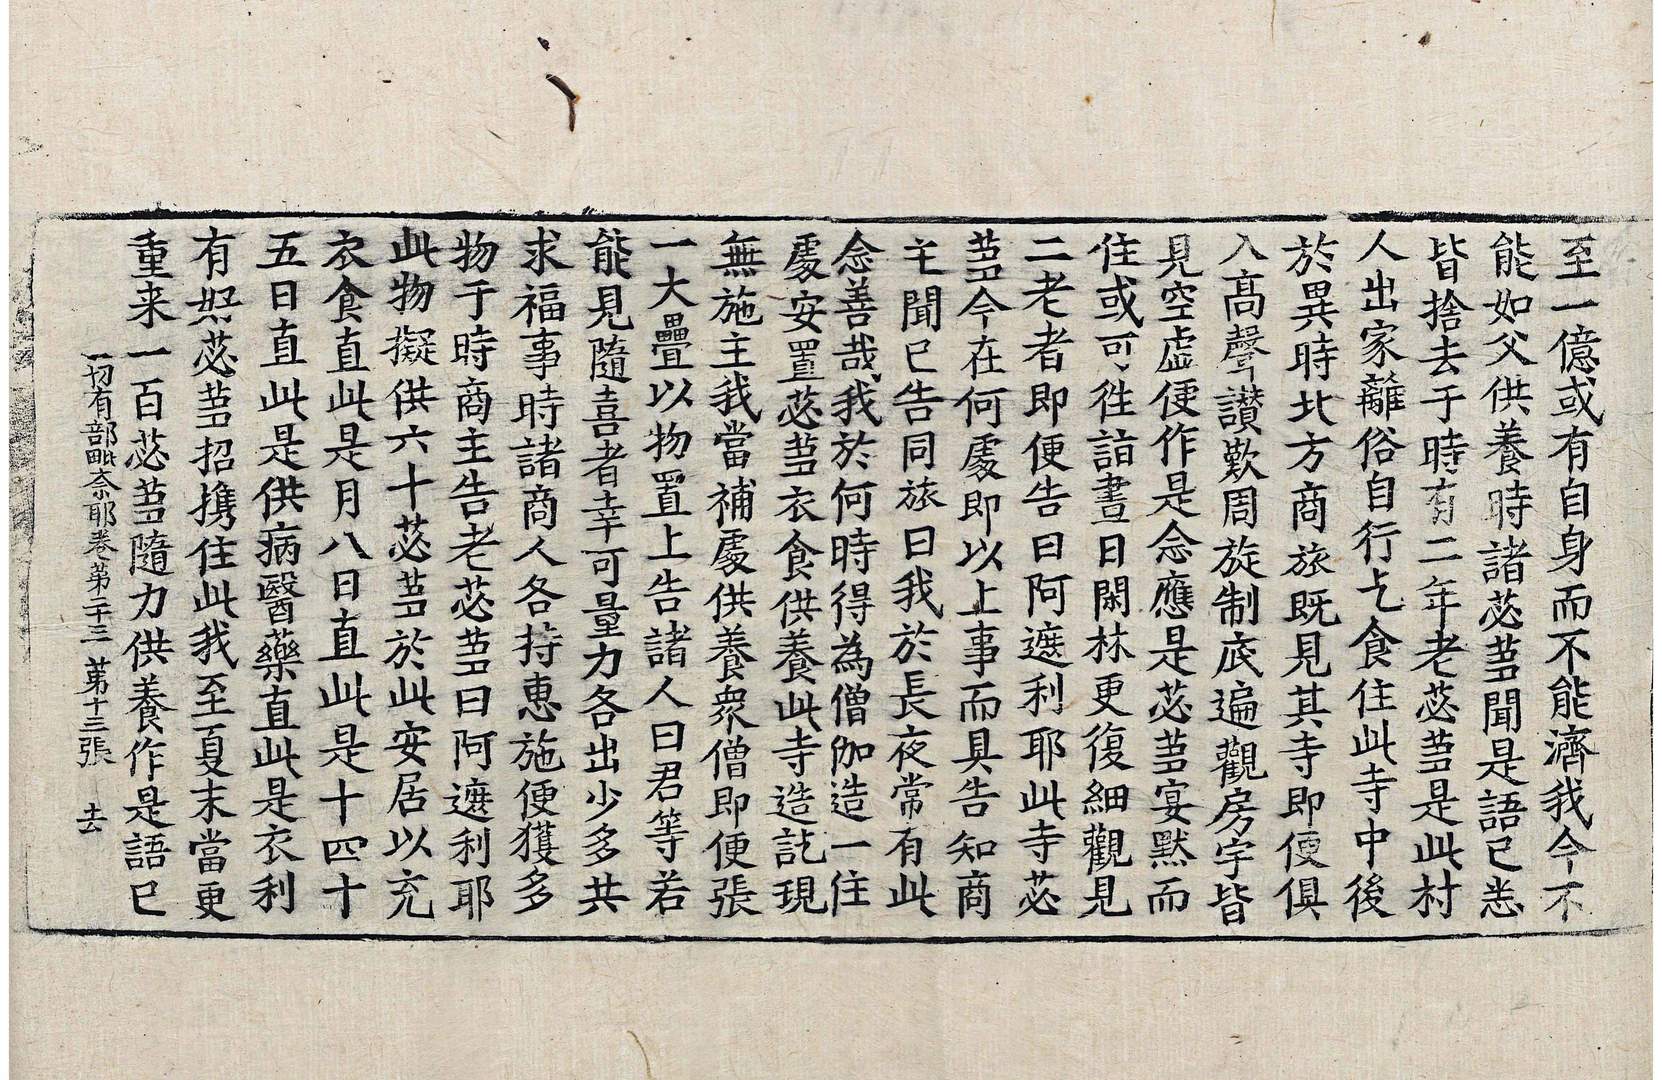 至一億或有自身而不能濟我今不
能如父供養時諸苾芻聞是語已悉
皆捨去于時有二年老苾芻是此村
人出家離俗自行乞食住此寺中後
於異時北方商旅既見其寺即便俱
入高聲讃歎周旋制底遍觀房宇皆
見空虛便作是念應是苾芻宴默而
住或可往詣晝日閑林更復細觀見
二老者即便告曰阿遮利耶此寺苾
芻今在何處即以上事而具告知商
主聞已告同旅曰我於長夜常有此
念善哉我於何時得為僧伽造一住
處安置苾芻衣食供養此寺造訖現
無施主我當補處供養衆僧即便張
一大疊以物置上告諸人曰君等若
能見隨喜者幸可量力各出少多共
求福事時諸商人各持惠施便獲多
物于時商主告老苾芻曰阿遮利耶
此物擬供六十苾芻於此安居以充
衣食直此是月八日直此是十四十
五日直此是供病醫藥直此是衣利
有好苾芻招携住此我至夏末當更
重来一百苾芻隨力供養作是語已
一切有部毗奈耶卷第二十三 第十三張 去